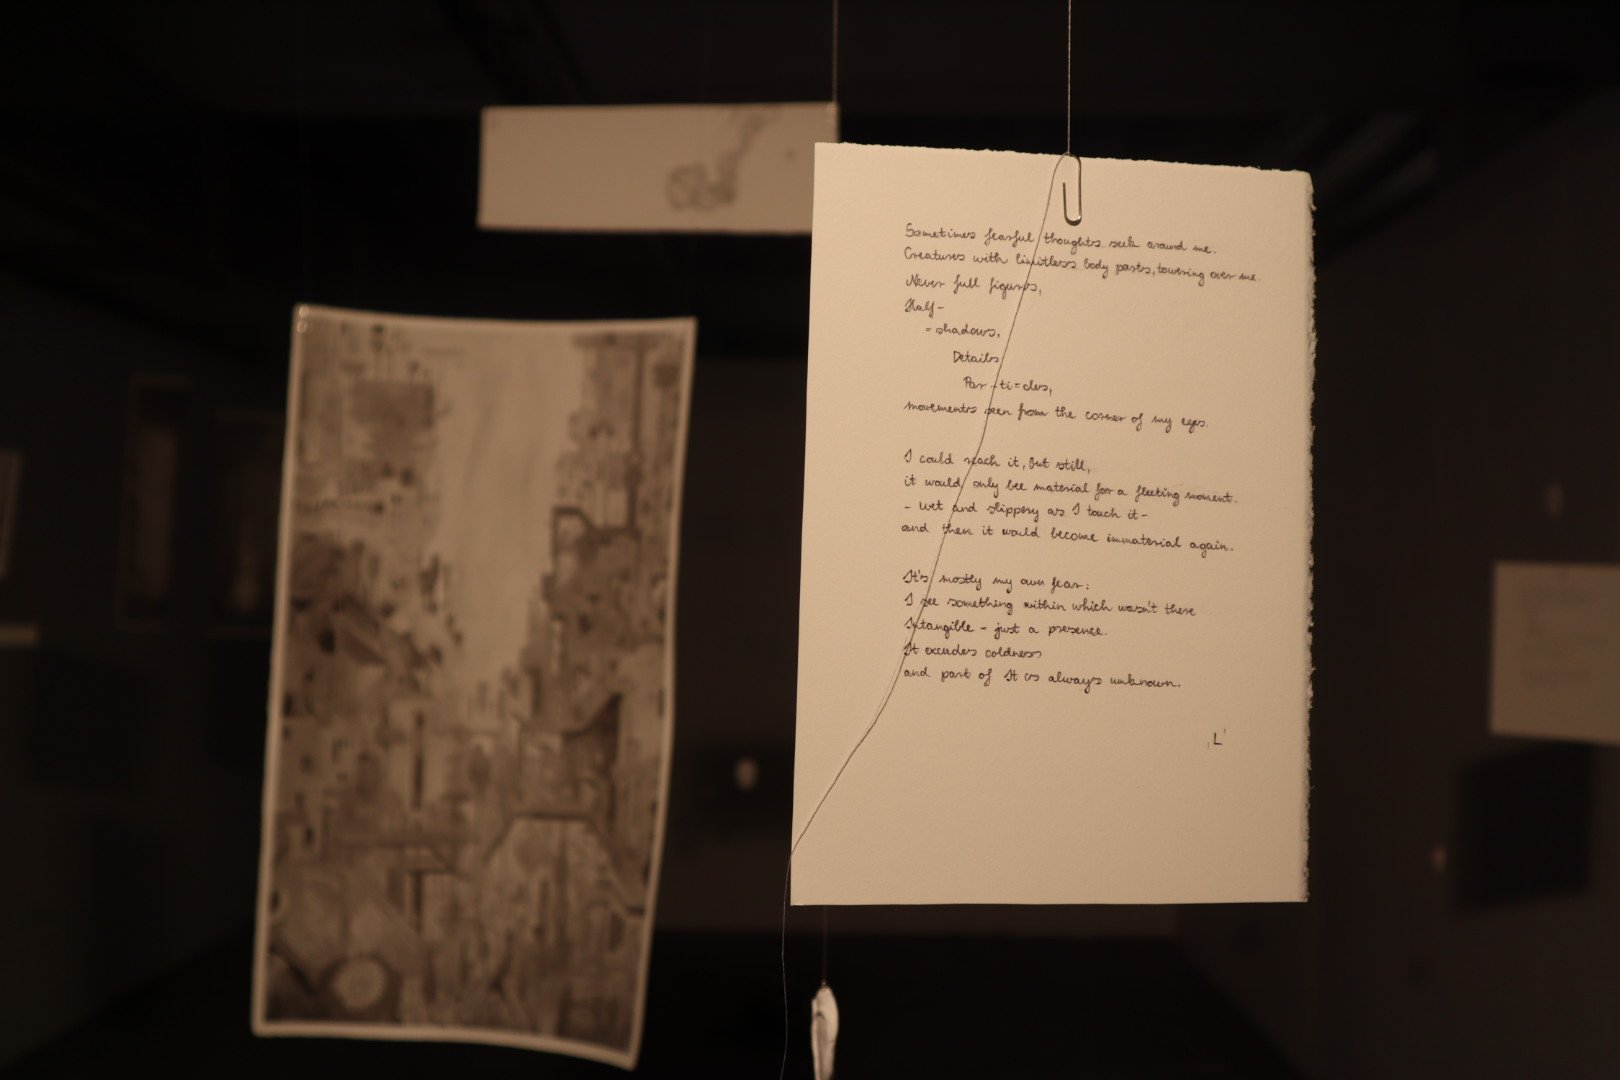 Sometimes fearful thoughts seek around me.
Creatures with limitless body parts, towering over me.
Never full figures,
Half-
= shadows,
Details
Par-ti=cles,
movements seen from the corner of my eyes.
I could reach it, but still,
it would only bee material for a fleeting moment.
- wet and slippery as I touch it -
and then it would become immaterial again.
It's mostly my own fear:
I see something within which wasn't there
Intangible - just a presence.
It excudes coldness
and part of It is always unknown.
'L'